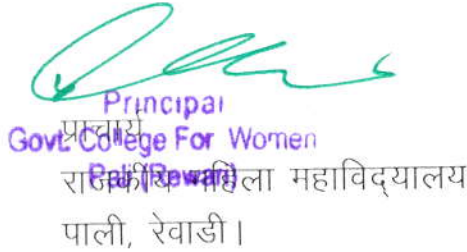 Principal
प्राचार्य
Govt. College For Women
Pali (Rewari)
राजकीय महिला महाविद्यालय
पाली, रेवाडी।